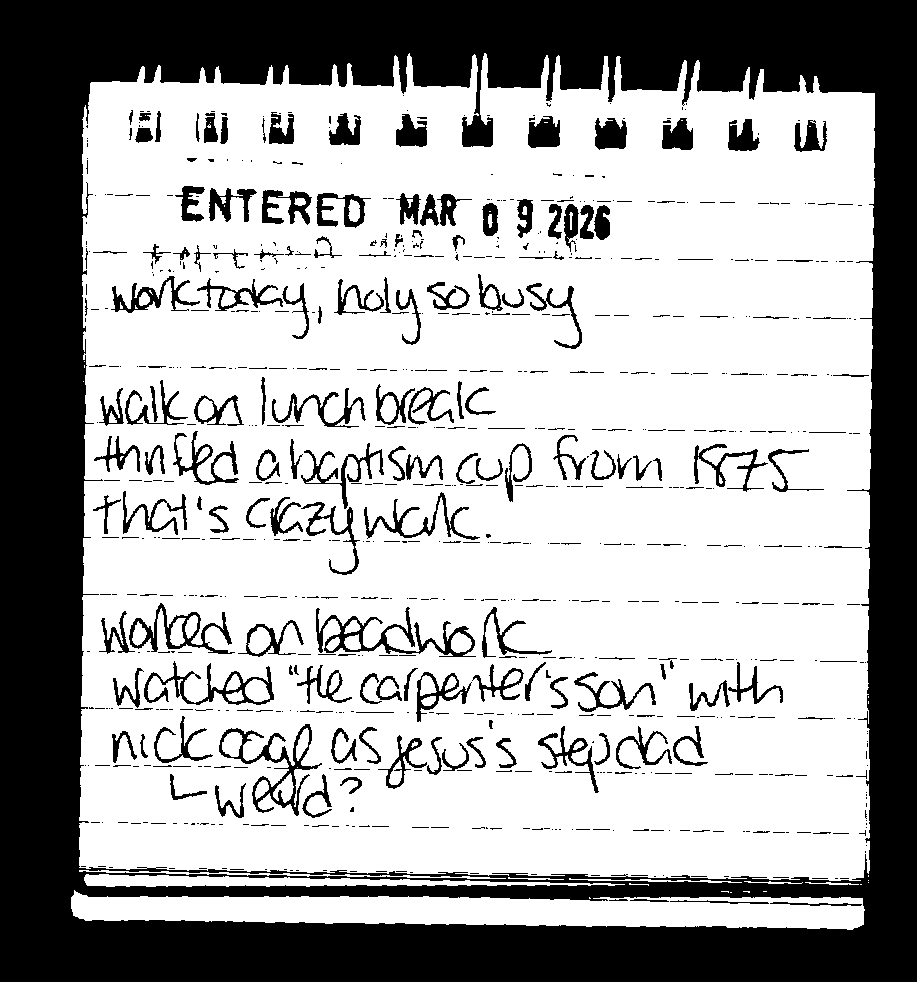 ENTERED MAR 09 2026
work today, holy so busy
walk on lunch break
thrifted a baptism cup from 1875
that's crazy work.
worked on beadwork
watched "the carpenter's son" with
nick cage as jesus's stepdad
└ weird?